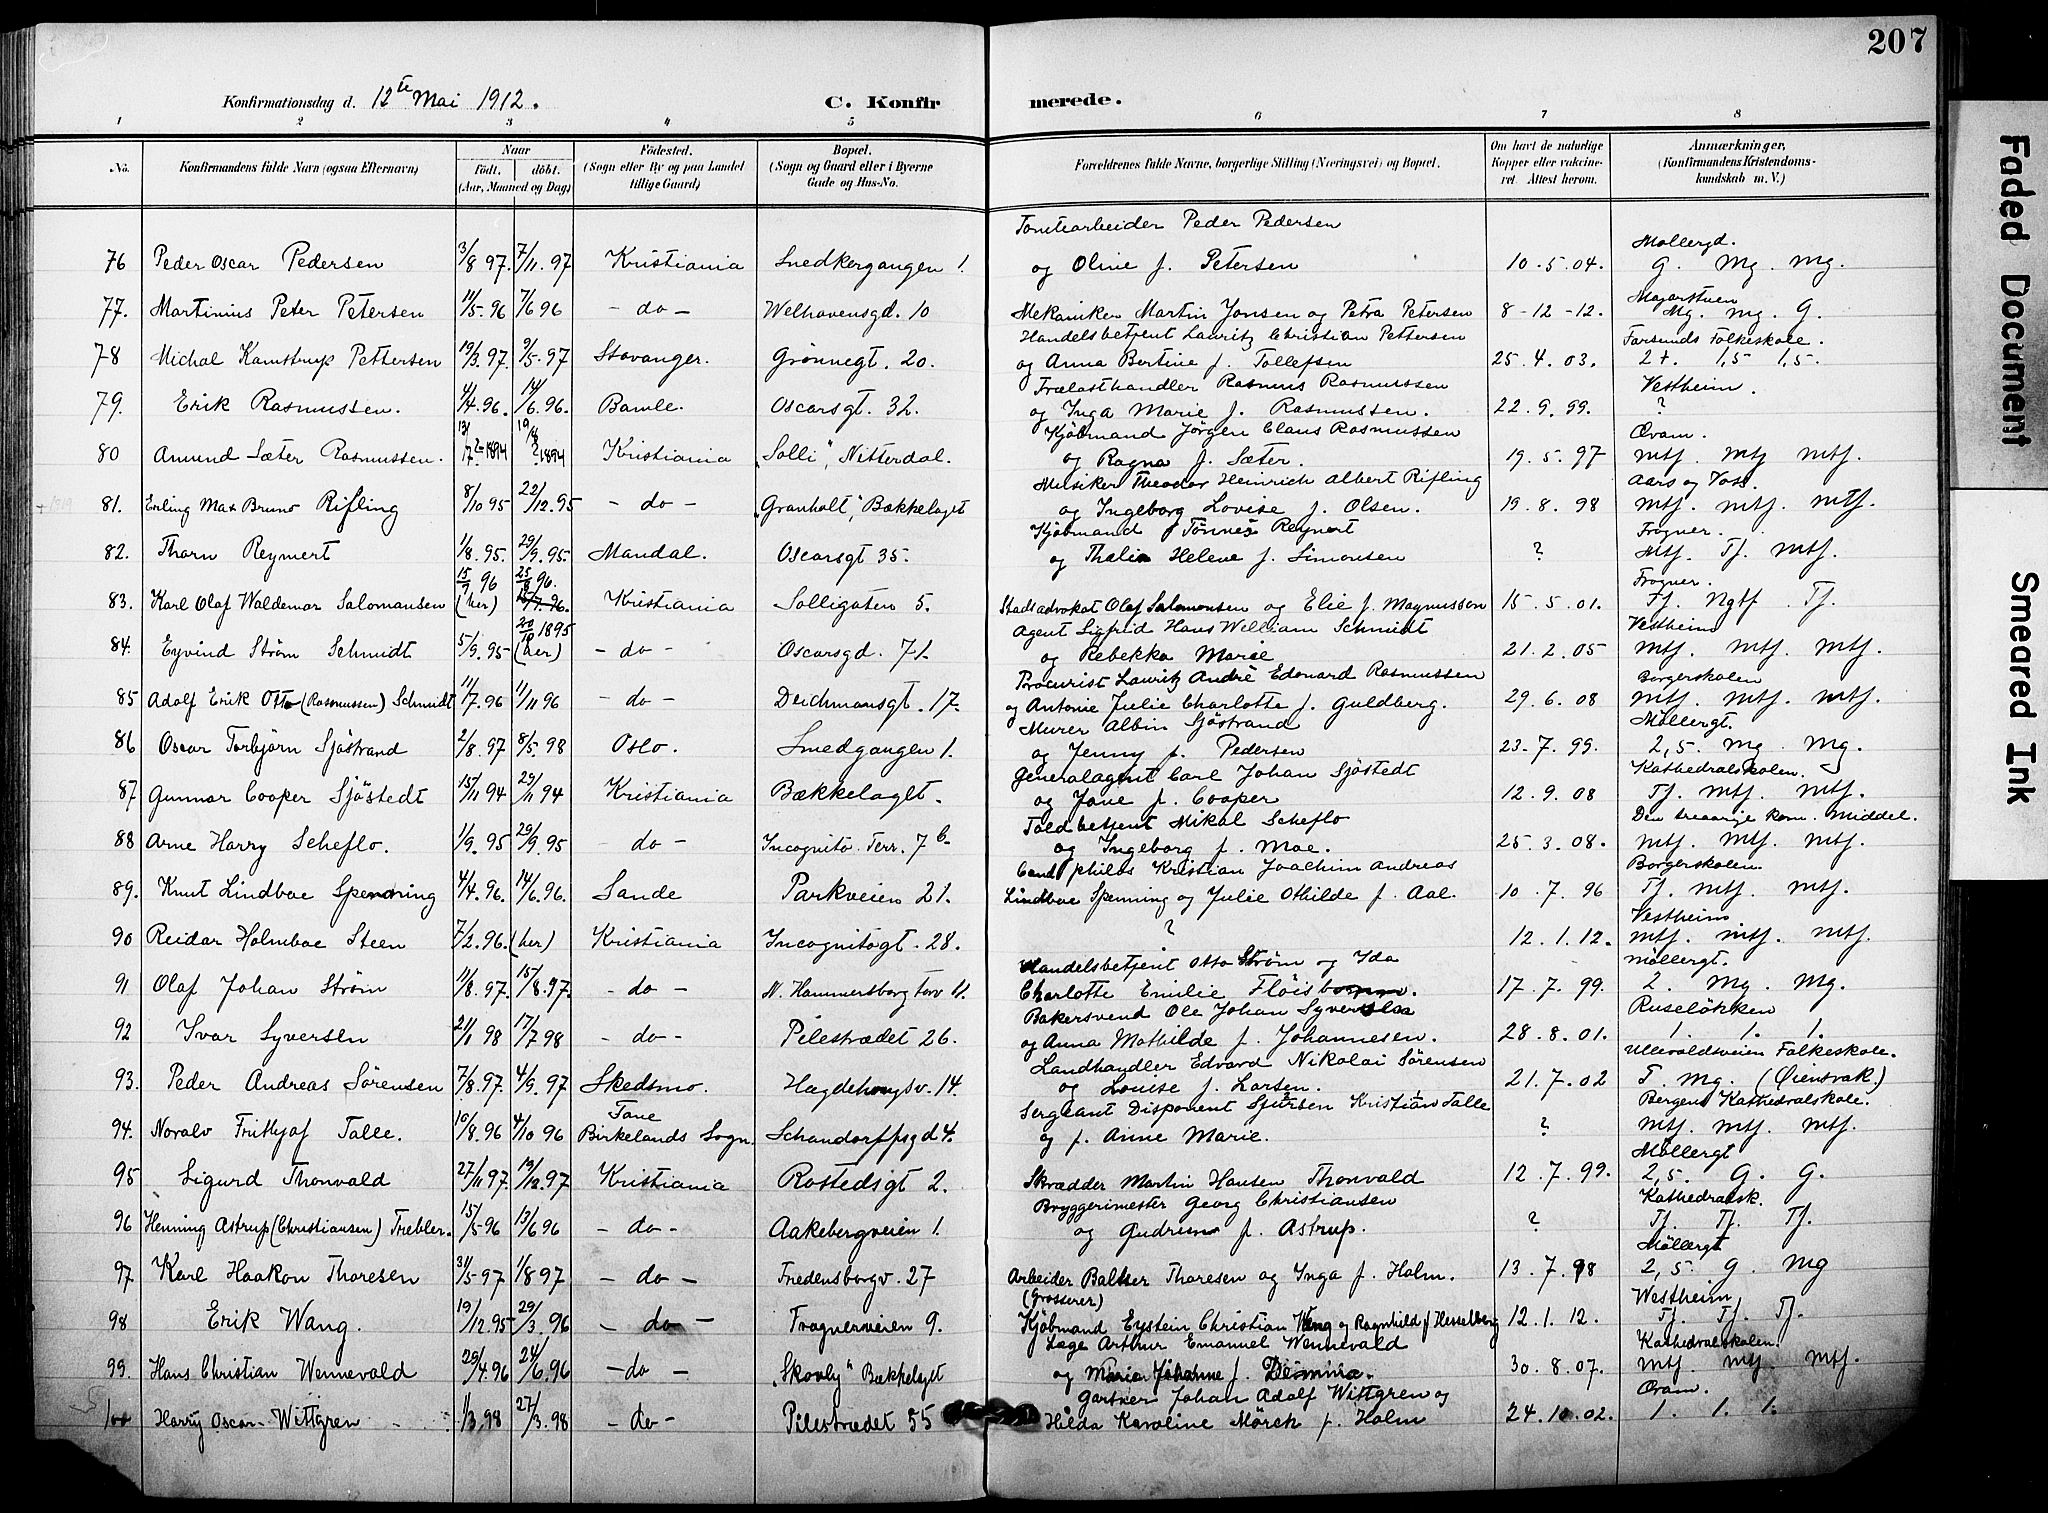 207
Konfirmationsdag d. 12te Mai 1912. C. Konfirmerede.
1 2 3 4 5 6 7 8
No. Konfirmandens fulde Navn (ogsaa Efternavn) Naar födt. döbt. (Aar, Maaned og Dag) Födested. (Sogn eller By og paa Landet tillige Gaard) Bopæl. (Sogn og Gaard eller i Byerne Gade og Hus-No. Forældrenes fulde Navne, borgerlige Stilling (Næringsvei) og Bopæl. Om havt de naturlige Kopper eller vaccineret. Attest herom. Anmærkninger, (Konfirmandens Kristendomskundskab m. V.)
Tomtearbeider Peder Pedersen Møllergd.
76 Peder Oscar Pedersen 3/8 97. 7/11. 97 Kristiania Snedkergangen 1. og Oline f. Petersen 10. 5. 04. G. Mg. Mg.
Majorstuen
77. Martinius Peter Petersen 11/5. 96 7/6 96 - do - Welhavensgd. 10 Mekaniker Martin Jonsen og Petra Petersen 8-12-12. Mg. Mg. G.
Handelsbetjent Lauritz Christian Pettersen Farsunds Folkeskole.
78 Michal Kamstrup Pettersen 19/3. 97. 9/5. 97 Stavanger. Grönnegt. 20. og Anna Bertine f. Tollefsen 25. 4. 03. 2+. 1,5 1,5.
Trælasthandler Rasmus Rasmussen Vestheim.
79. Erik Rasmussen. 4/4. 96. 14/6. 96. Bamle. Oscarsgt. 32. og Inga Marie f. Rasmussen. 22. 9. 99. ?
Kjöbmand Jörgen Claus Rasmussen Qvam.
80 Amund Sæter Rasmussen. 1894 1894 Kristiania "Solli", Nitterdal. og Ragna f. Sæter. 19. 5. 97 mtf. mtf mtf.
Musiker Theodor Heinrich Albert Rifling Aars og Voss.
+ 1919 81. Erling Max Bruno Rifling 8/10 95 22/12. 95 - do - "Granholt", Bækkelaget og Ingeborg Lovise f. Olsen. 19. 8. 98 mtf. mtf. mtf.
Kjöbmand Tönnes Reymert Frogner.
82. Thorn Reymert 1/8. 95. 29/9. 95. Mandal. Oscarsgt 35. og Thalia Helene f. Simonsen ? Mtf. Tf. mtf.
15/9 96 25/8 96. Frogner.
83. Karl Olaf Waldemar Salomonsen (her) Kristiania Solligaten 5. Stadsadvokat Olaf Salomonsen og Elie f. Magnussen 15. 5. 01. Tf. Ngtf. Tf.
20/10 1895 Agent Sigfrid Hans William Schmidt Vestheim
84. Eyvind Ström Schmidt 5/9. 95 (her) - do - Oscarsgd. 71. og Rebekka Marie 21. 2. 05 mtf. mtf. mtf.
Procurist Lauritz André Edouard Rasmussen Borgerskolen
85 Adolf Erik Otto (Rasmussen) Schmidt 11/7. 96 11/11 96 - do - Deichmansgt. 17. og Antonie Julie Charlotte f. Guldberg. 29. 6. 08 mtf. mtf. mtf.
Murer Albin Sjöstrand Möllergt.
86 Oscar Torbjörn Sjöstrand 2/8. 97 8/5. 98 Oslo. Smedgangen 1. og Jenny f. Pedersen 23. 7. 99. 2,5. Mg. Mg.
Generalagent Carl Johan Sjöstedt Kathedralskolen.
87 Gunnar Cooper Sjöstedt 15/11 94 29/11 94 Kristiania Bækkelaget. og Jane f. Cooper 12. 9. 08 Tf. mtf. mtf.
Toldbetjent Mikal Scheflo Den treaarige kom. Middel.
88 Arne Harry Scheflo. 1/9. 95 29/9. 95 - do - Incognito Terr. 7 b. og Ingeborg f. Moe. 25. 3. 08. mtf. mtf. mtf.
Cand philos Kristian Joachim Andreas Borgerskolen
89. Knut Lindboe Spenning 4/4. 96. 14/6. 96. Sande Parkveien 21. Lindboe Spenning og Julie Othilde f. Aal. 10. 7. 96 Tf. mtf. mtf.
Vestheim
90 Reidar Holmboe Steen 7/2. 96. (her) Kristiania Incognitogt. 28. ? 12. 1. 12. mtf. mtf. mtf.
Handelsbetjent Otto Ström og Ida Möllergt.
91 Olaf Johan Ström 11/8. 97. 15/8. 97. - do - N. Hammersborg Torv 11. Charlotte Emilie 17. 7. 99. 2. Mg. Mg.
Bakersvend Ole Johan Syversen Ruseløkken
92 Ivar Syversen 21/1 98 17/7 98 - do - Pilestrædet 26. og Anna Mathilde f. Johannesen. 28. 8. 01. 1. 1. 1.
Landhandler Edvard Nikolai Sörensen Ullevoldsveien Folkeskole.
93. Peder Andreas Sörensen 7/8. 97. 4/9. 97 Skedsmo. Hægdehougsv. 14. og Louise f. Larsen. 21. 7. 02 T. Mg. (Øiensvak.)
Tane Sergeant Disponent Kristian Talle Bergens Kathedralskole.
94. Noralv Frithjof Talle. 10/8. 96 4/10 96 Birkelands Sogn. Schandorffsgd 4. og f. Anne Marie. ? mtf. mtf. mtf.
Möllergt
95 Sigurd Thorvald 27/11 97. 19/12. 97 Kristiania Rostedsgt 2. Skrædder Martin Hansen Thorvald 12. 7. 99. 2,5. G. G.
Bryggerimester Georg Christiansen Kathedralsk.
96 Henning Astrup (Christiansen) Trebler. 15/5. 96 13/6 96 - do - Aakebergveien 1. og Gudrun f. Astrup. ? Tf. Tf. Tf.
Möllergt
97 Karl Haakon Thoresen 31/5. 97 1/8 97 - do - Fredensborgv. 27 Arbeider Balther Thoresen og Inga f. Holm. 13. 7. 98 2,5. G. Mg
(Grosserer) Westheim
98 Erik Wang. 19/12. 95 29/3. 96 - do - Frognerveien 9. Kjöbmand Eystein Christian Wang og Ragnhild f Hesselberg 12. 1. 12. Tf. Tf. Tf.
Læge Arthur Emanuel Wennevold Kathedralskolen.
99. Hans Christian Wennevold 29/4. 96 24/6. 96 - do - "Skovly" Bækkelaget og Marie Johanne f. 30. 8. 07. mtf. mtf. mtf.
Gartner Johan Adolf Wittgren og Qvam.
100 Harry Oscar Wittgren 1/3. 98 27/3. 98 - do - Pilestrædet 55 Hilda Karoline Mörch f. Holm 24. 10. 02. 1. 1. 1.
Faded Document
Smeared Ink